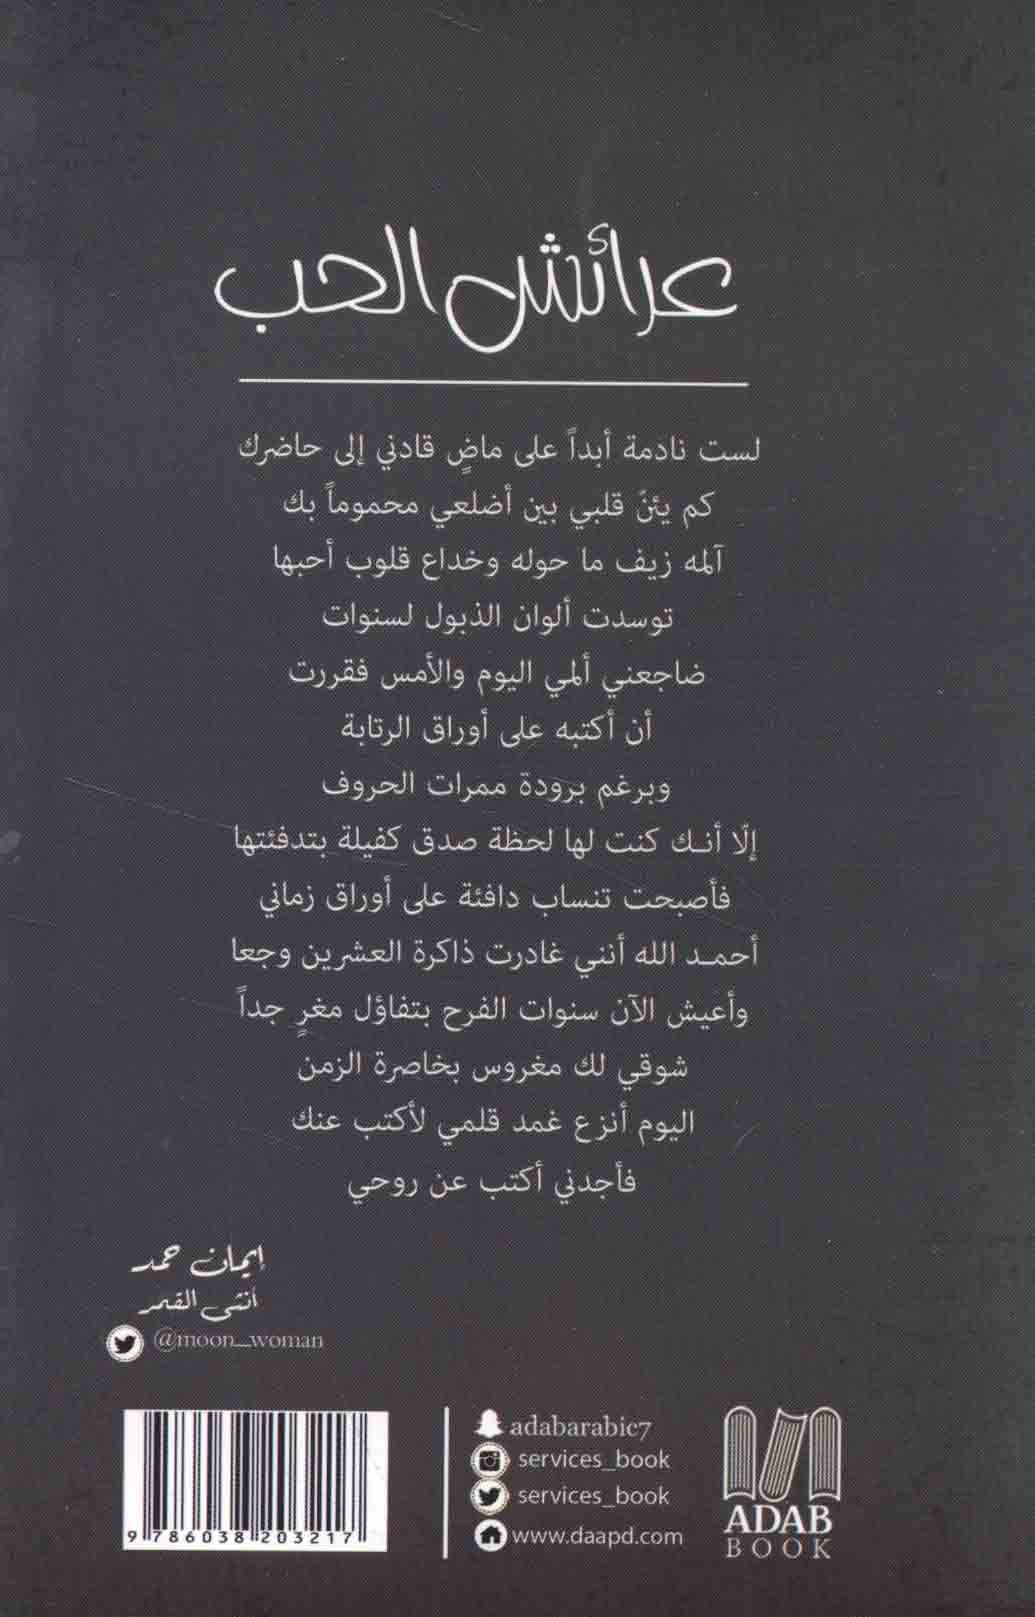 عرائش الحب
لست نادمة أبداً على ماضٍ قادني إلى حاضرك
كم يئنّ قلبي بين أضلعي محموماً بك
آلمه زيف ما حوله وخداع قلوب أحبها
توسدت ألوان الذبول لسنوات
ضاجعني ألمي اليوم والأمس فقررت
أن أكتبه على أوراق الرتابة
وبرغم برودة ممرات الحروف
إلّا أنـك كنت لها لحظة صدق كفيلة بتدفئتها
فأصبحت تنساب دافئة على أوراق زماني
أحمـد الله أنني غادرت ذاكرة العشرين وجعا
وأعيش الآن سنوات الفرح بتفاؤل مغرٍ جداً
شوقي لك مغروس بخاصرة الزمن
اليوم أنزع غمد قلمي لأكتب عنك
فأجدني أكتب عن روحي
إيمان حمد
أنثى القمر
@moon_woman
9 786038 203217
adabarabic7
services_book
services_book
www.daapd.com
ADAB
BOOK